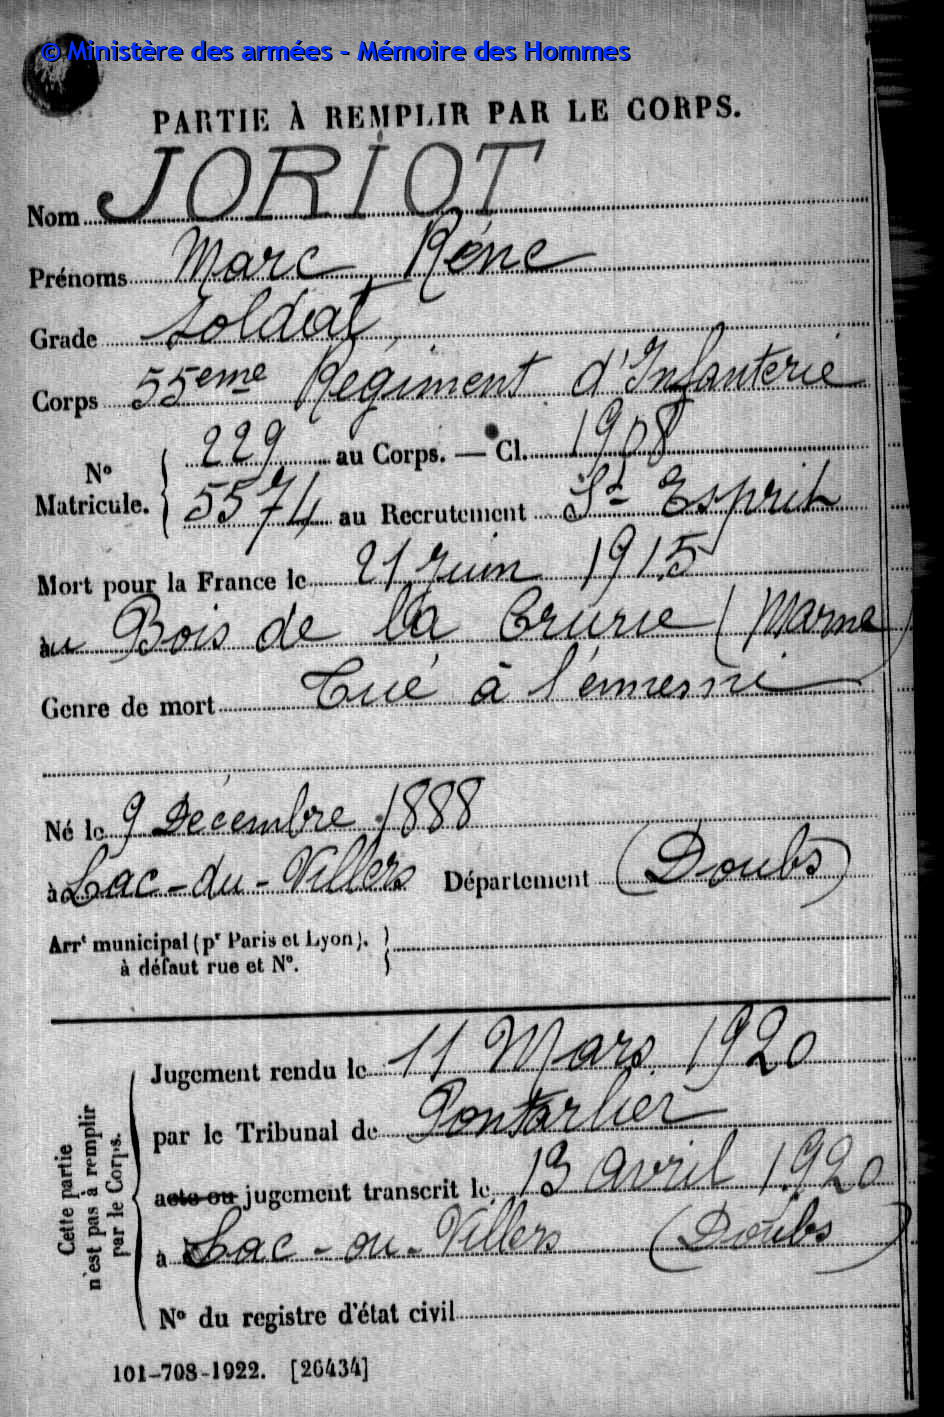 © Ministère des armées - Mémoire des Hommes
PARTIE À REMPLIR PAR LE CORPS.
Nom JORIOT
Prénoms Marc Réné
Grade Soldat
Corps 55eme Régiment d'Infanterie
N° Matricule. { 229 au Corps. — Cl. 1908
5574 au Recrutement St Esprit
Mort pour la France le 21 Juin 1915
au Bois de la Grurie (Marne)
Genre de mort Tué à l'ennemi
Né le 9 Décembre 1888
à Lac-du-Villers Département (Doubs)
Arrt municipal (pr Paris et Lyon),
à défaut rue et N°.
Cette partie n'est pas à remplir par le Corps.
Jugement rendu le 11 Mars 1920
par le Tribunal de Pontarlier
acte ou jugement transcrit le 13 avril 1920
à Lac-ou-Villers (Doubs)
N° du registre d'état civil
101-708-1922. [26434]